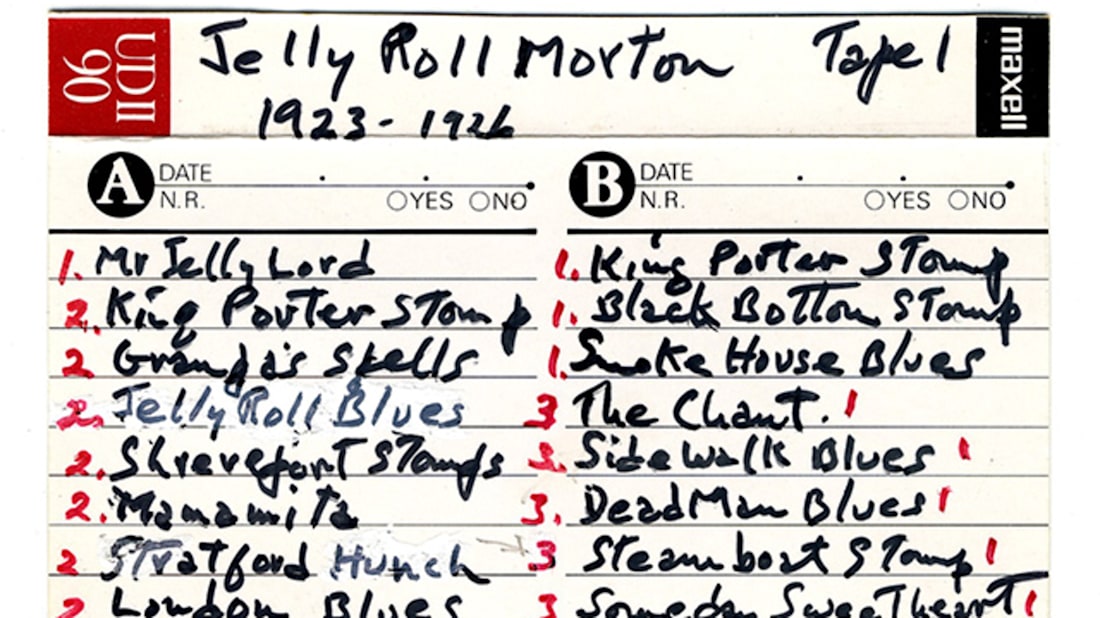 UDII 90
Jelly Roll Morton Tape 1
maxell
1923 - 1926
A DATE
N.R. YES NO
B DATE
N.R. YES NO
1. Mr Jelly Lord
2. King Porter Stomp
2 Grandpa's Spells
2. Jelly Roll Blues
2. Shreveport Stomps
2. Mamamita
2 Stratford Hunch
2 London Blues
1. King Porter Stomp
1. Black Bottom Stomp
1. Smoke House Blues
3 The Chant. 1
3. Sidewalk Blues 1
3. Dead Man Blues 1
3 Steamboat Stomp 1
3 Someday Sweetheart 1